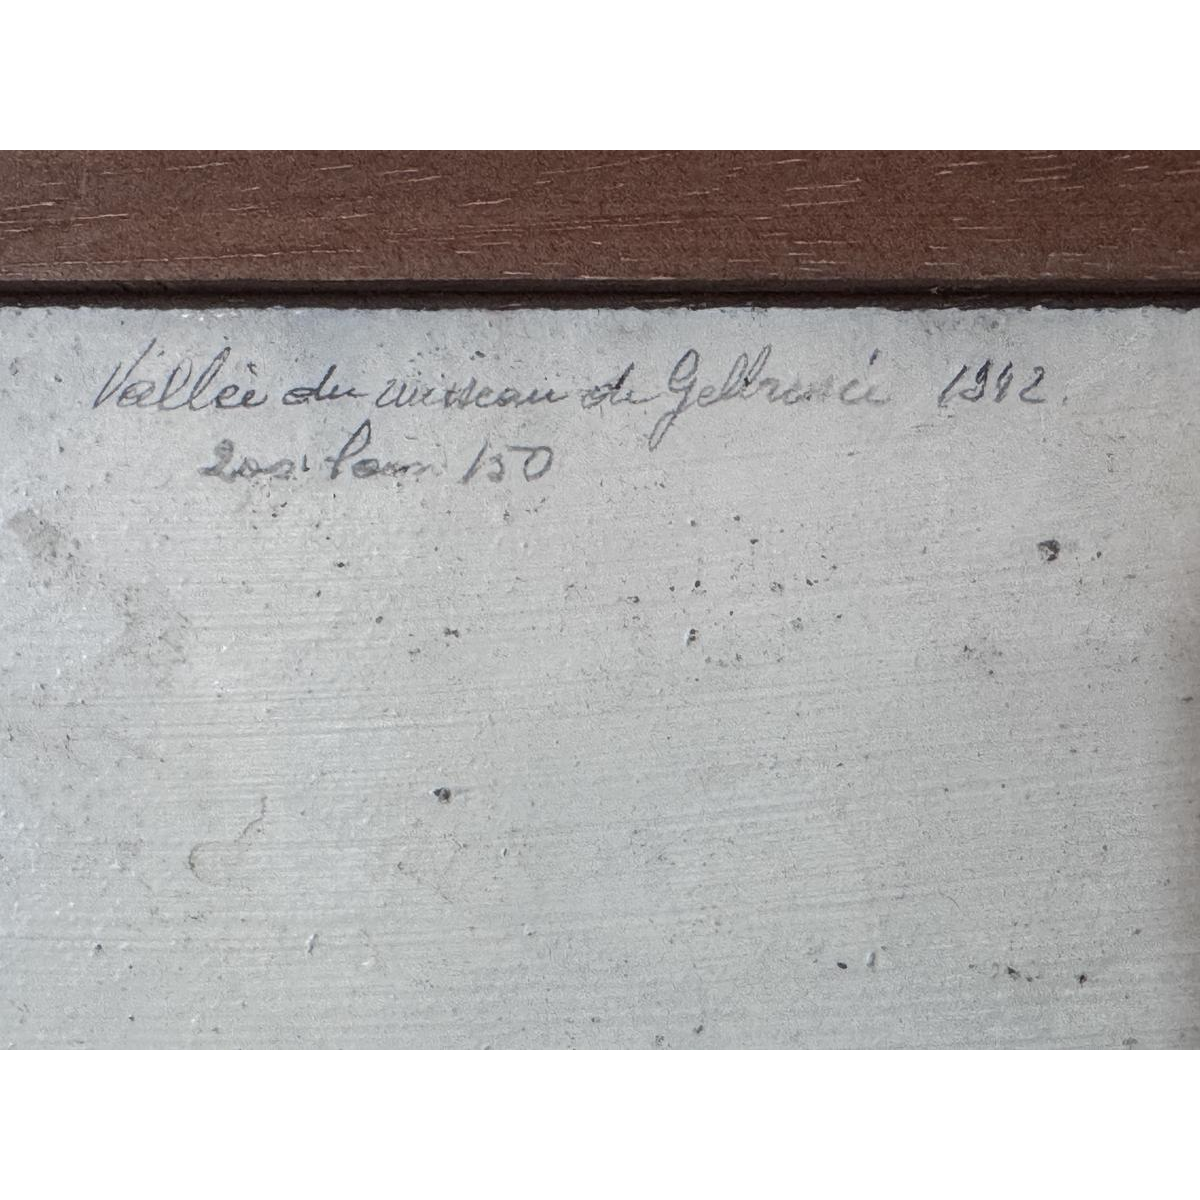 Vallée du ruisseau de Gellressée 1942.
200 150